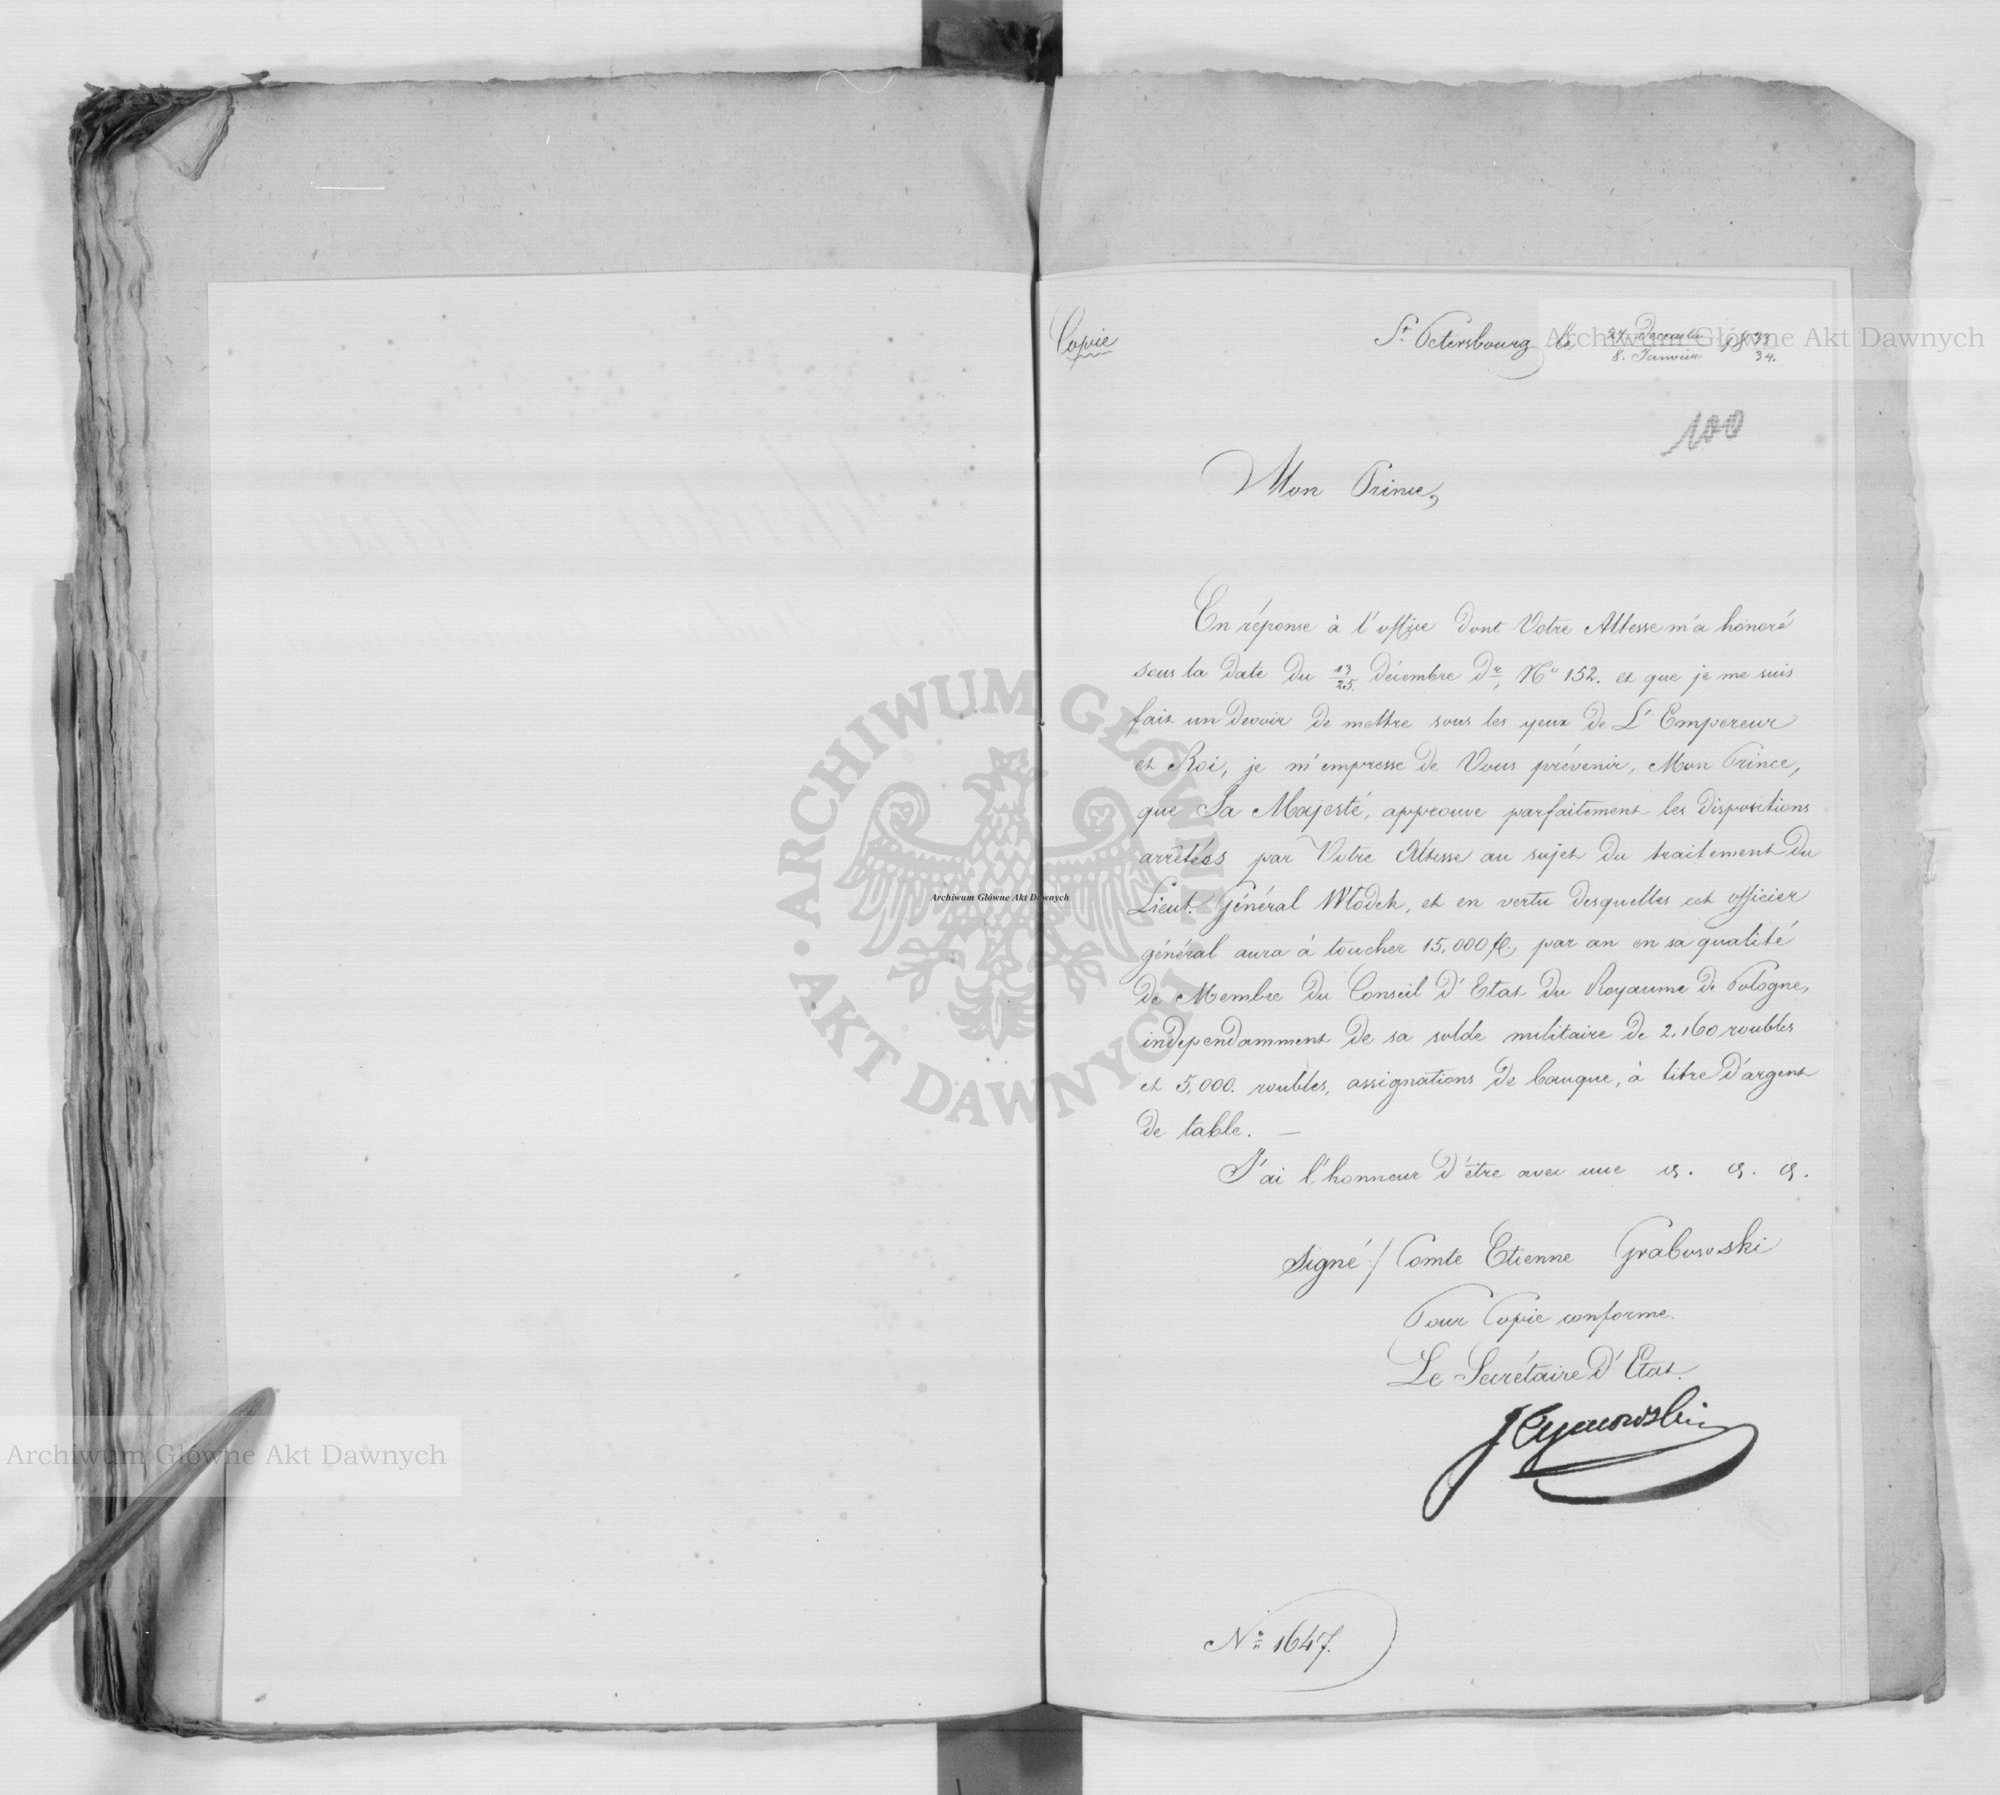 Copie
St. Petersbourg le 27. Decembre / 8. Janvier 1833/34.
100
Mon Prince,
En réponse à l'office dont Votre Altesse m'a honoré
sous la date du 13/25. décembre dr, No 152. et que je me suis
fait un devoir de mettre sous les yeux de L'Empereur
et Roi, je m'empresse de Vous prévenir, Mon Prince,
que Sa Majesté, approuve parfaitement les dispositions
arrêtées par Votre Altesse au sujet du traitement du
Lieut. Général Włodek, et en vertu desquelles cet officier
général aura à toucher 15,000 fl. par an en sa qualité
de Membre du Conseil d'Etat du Royaume de Pologne,
independamment de sa solde militaire de 2.160 roubles
et 5,000. roubles, assignations de banque, à titre d'argent
de table. —
J'ai l'honneur d'être avec une &. &. &.
Signé / Comte Etienne Grabowski
Pour Copie conforme.
Le Secrétaire d'Etat.
No 1647.
Archiwum Główne Akt Dawnych
Archiwum Główne Akt Dawnych
Archiwum Główne Akt Dawnych
ARCHIWUM GŁÓWNE AKT DAWNYCH